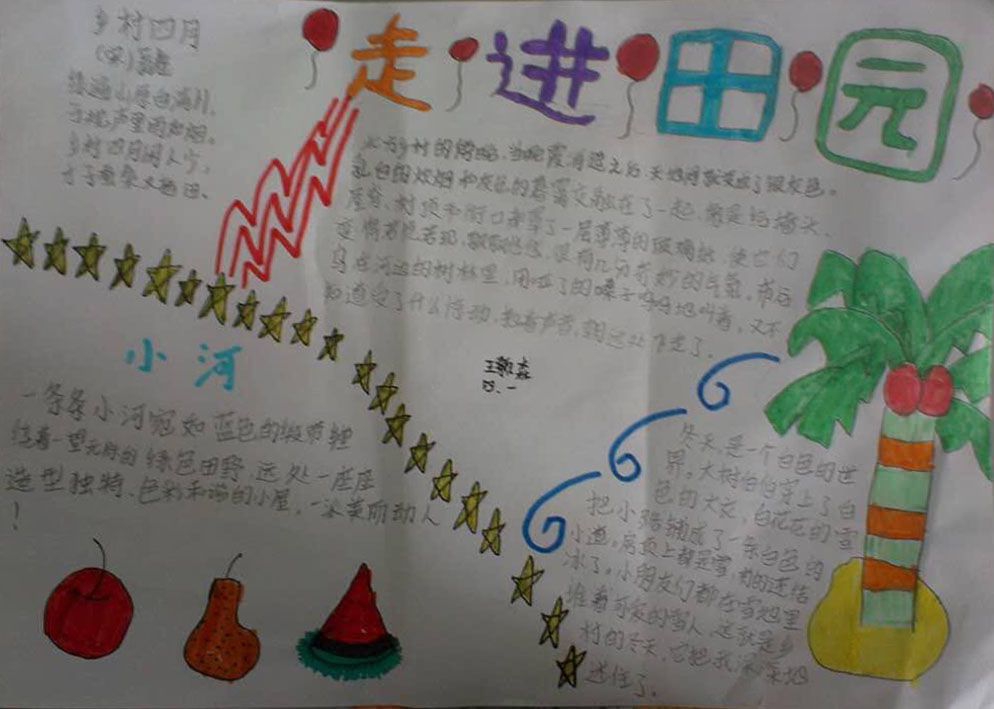 走进田园
乡村四月
(宋)翁卷
绿遍山原白满川,
子规声里雨如烟。
乡村四月闲人少,
才了蚕桑又插田。
乡村的傍晚,当晚霞消退之后,天地间就变成了银灰色。
乳白的炊烟和灰色的暮霭交融在了一起,像是给墙头、
屋脊、树顶和街口都罩了一层薄薄的玻璃纸,使它们
变得若隐若现,飘飘悠悠,很有几分奇妙的气氛。
乌在河边的树林里,用哑了的嗓子呜呜地叫着,又不
知道受了什么惊动,拖着声音,朝远处飞去了。
王
四.一
小河
一条条小河宛如蓝色的缎带缠
绕着一望无际的绿色田野,远处一座座
造型独特、色彩和谐的小屋,动人
!
冬天,是一个白色的世
界。大树伯伯穿上了白
色的大衣,白花花的雪
把小路铺成了一条白色的
小道,房顶上都是雪,有的还结
冰了。小朋友们都在雪地里
堆着可爱的雪人,这就是乡
村的冬天,它把我深深地
迷住了。